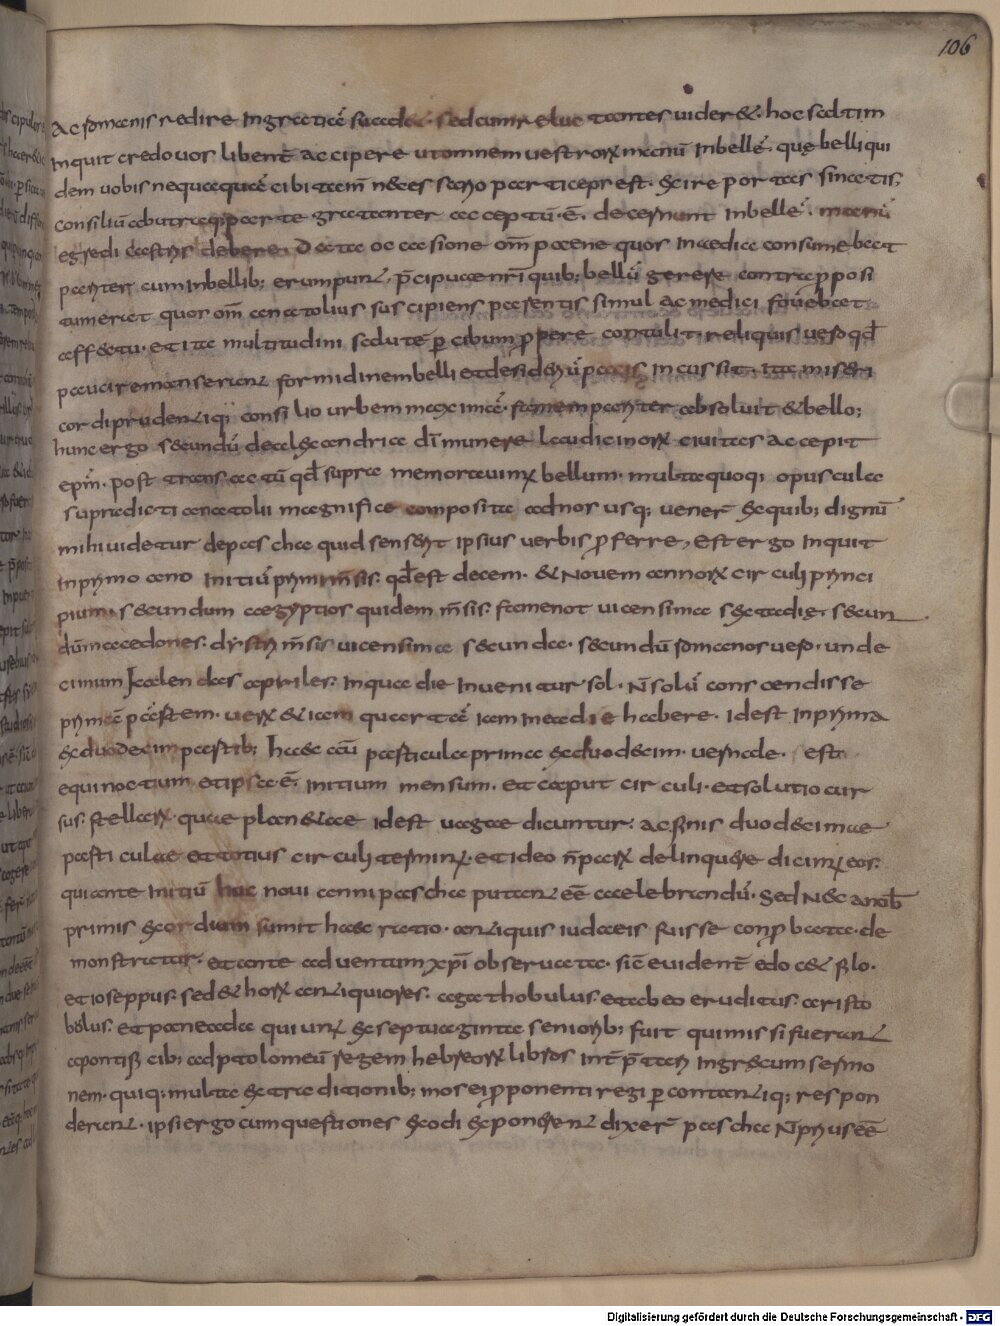 106
ac romanis redire ingratiā suadet. sed cum reluctantes videret. hoc saltim
inquit credo vos libenť accipere ut omnem vestroꝝ manū inbellē. quę belli qui
dem vobis nequaquā cibi tam̄ neces sario particeps est. Scire portas sinatis,
consiliū ab utraq; parte gratanter acceptū. ē. decernunt inbellē. manū
egredi castris debere. Data occasione om̄ paene quos inaedia consumebat
pariter cum inbellib; erumpunt, p̄cipuae nr̄i quib; bellū gerere contra p̄posi
tum erat quos om̄ anatolius suscipiens parentis simul ac medici fovebat
affectu. et ita multitudini salutē ꝑ cibum ꝓpere contulit. reliquis vero qđ
pauci remanserant formidinem belli et desiderū pacis incussit. ita miseri
cordi prudentiq; consilio urbem maximā. famem pariter absolvit & bello;
hunc ergo secundū de alexandria dī munere laudicinoꝝ civitas accepit
epm̄. post transactū qđ supra memoravimꝰ bellum. multa quoq; opuscula
supradicti anatolii magnifice composita ad nos usq; veneř Ex quib; dignū
mihi videtur de pascha quid senserit ipsius verbis ꝓferre, Est ergo inquit
in primo anno initiū primi m̄sis. qđ est decem. & novem annoꝝ circuli princi
pium. secundum aegyptios quidem m̄sis. famenot vicensima sexta die. secun
dūm macedones. dystri m̄sis vicensima secunda. secundū romanos vero. unde
cimum kalendas apriles. in qua die invenitur sol. N̄ solū conscendisse
primā partem. verū & iam quartā iam in ea die habere. idest in prima
ex duodecim partib; haec aūt particula prima ex duodecim. vernale. est
equinoctium et ipsa ē. initium mensum. et caput circuli. et solutio cur
sus. stellarū. quae planetae idest vagae dicuntur. ac finis duodecimae
particulae et totius circuli terminꝰ. et ideo n̄ parꝝ delinquere dicimꝰ eos.
qui ante initiū hoc novi anni pascha putant eē caelebrandū. Sed nec a nob̄
primis exordium sumit haec ratio. antiquis iudaeis fuisse conꝓbata. de
monstratur. et ante adventum xp̄i observata. sic evidenť edocet filo.
et ioseppus. sed & horꝝ antiquiores. agathobulus. et ab eo eruditus. aristo
bolus. et paneada qui unꝰ ex septuaginta seniorib; fuit qui missi fuerant
a pontificib; ad ptolomeū regem hebreorꝝ libros int̄p̄tari in grecum sermo
nem. quiq; multa ex traditionib; mosei ꝓponenti regi ꝑcontantiq; respon
derunt. ipsi ergo cum questiones exodi exponerent dixeř pascha N̄ priusēē
Digitalisierung gefördert durch die Deutsche Forschungsgemeinschaft - DFG